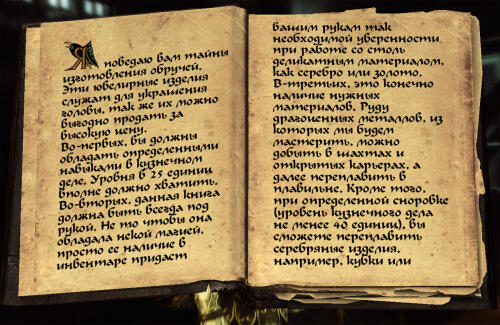 Я поведаю вам тайны
изготовления обручей.
Эти ювелирные изделия
служат для украшения
головы, так же их можно
выгодно продать за
высокую цену.
Во-первых, вы должны
обладать определенными
навыками в кузнечном
деле. Уровня в 25 единиц
вполне должно хватить.
Во-вторых, данная книга
должна быть всегда под
рукой. Не то чтобы она
обладала некой магией,
просто ее наличие в
инвентаре придаст
вашим рукам так
необходимой уверенности
при работе со столь
деликатным материалом,
как серебро или золото.
В-третьих, это конечно
наличие нужных
материалов. Руду
драгоценных металлов, из
которых мы будем
мастерить, можно
добыть в шахтах и
открытых карьерах, а
далее переплавить в
плавильне. Кроме того,
при определенной сноровке
(уровень кузнечного дела
не менее 40 единиц), вы
сможете переплавить
серебряные изделия,
например, кубки или